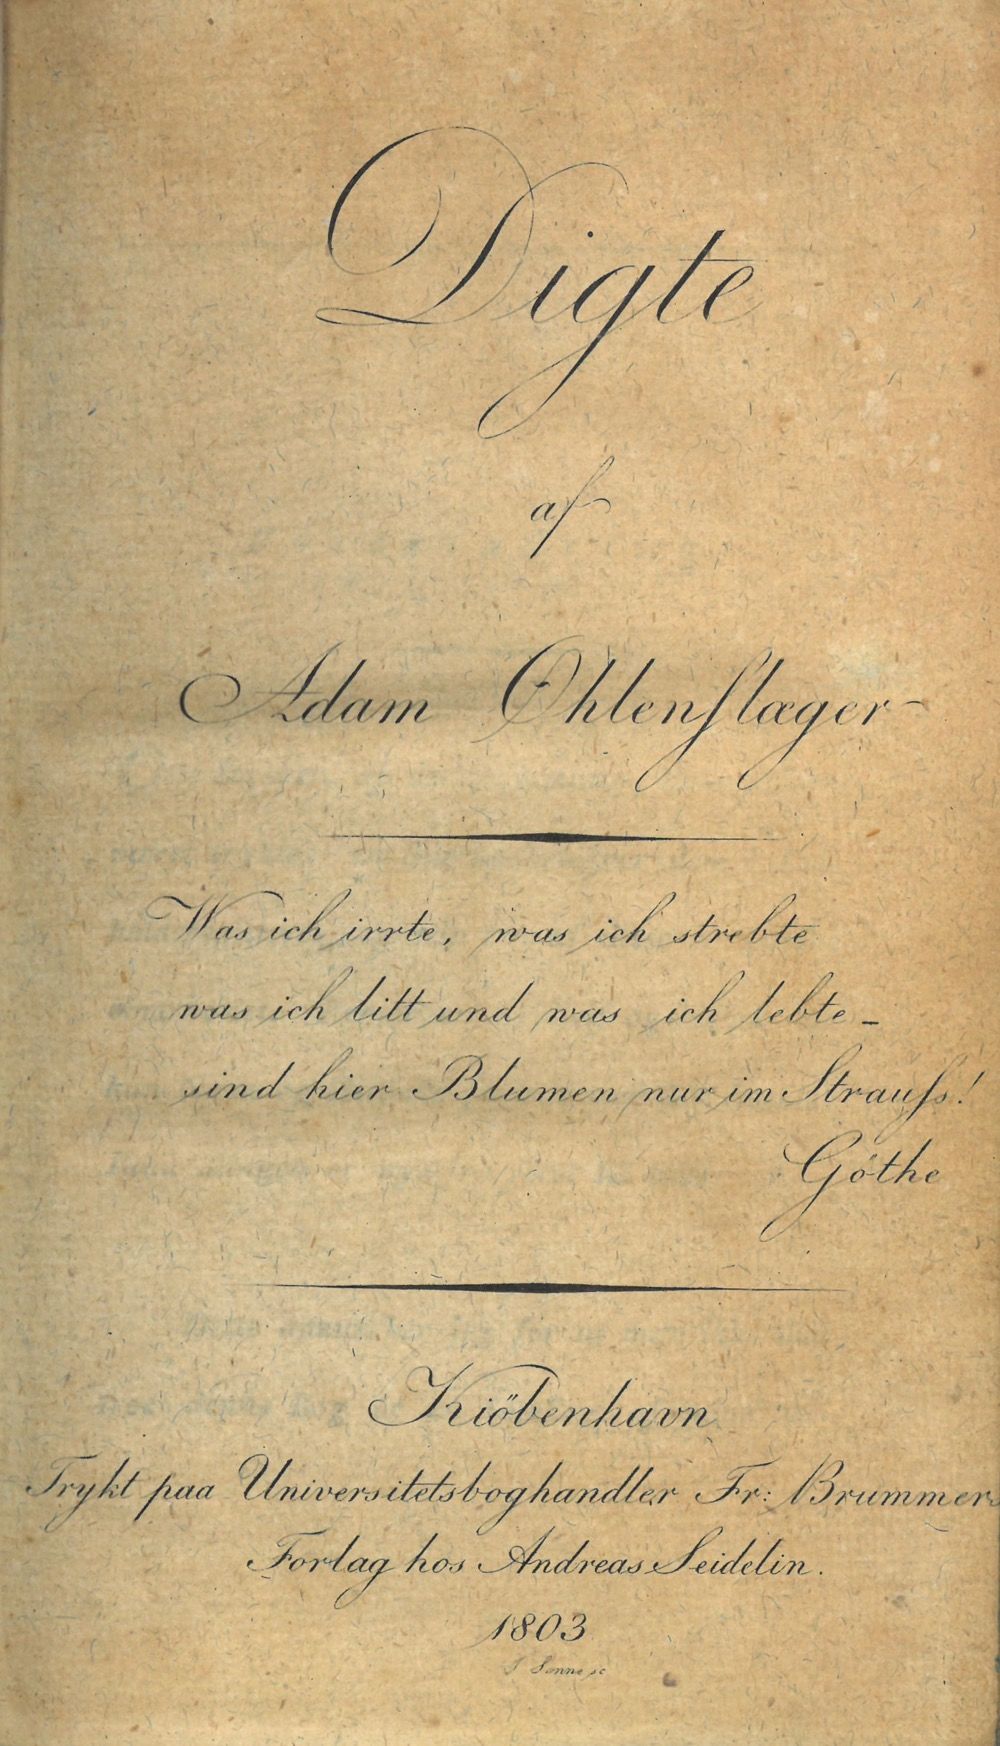 Digte
af
Adam Øhlenſlæger
Was ich irrte, was ich strebte
was ich litt und was ich lebte –
sind hier Blumen nur im Strauſs!
Göthe
Kiöbenhavn
Trykt paa Universitetsboghandler Fr: Brummers
Forlag hos Andreas Seidelin.
1803
Sonne sc